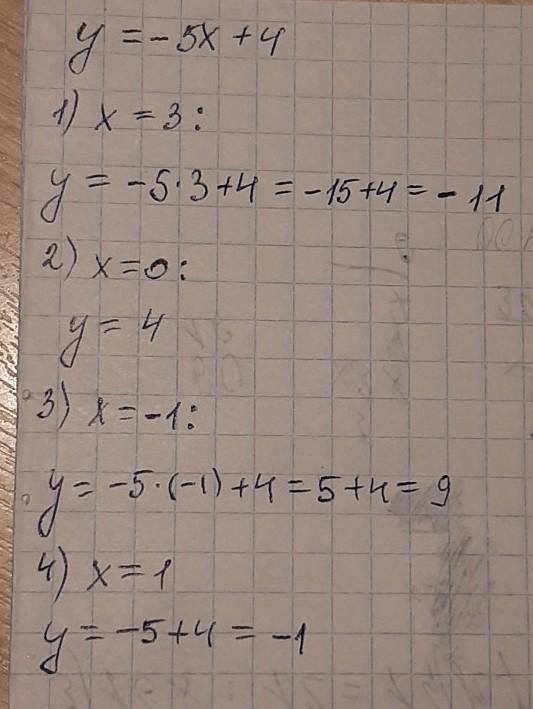 y = -5x + 4
1) x = 3:
y = -5·3+4 = -15+4 = -11
2) x = 0:
y = 4
3) x = -1:
y = -5·(-1)+4 = 5+4 = 9
4) x = 1
y = -5+4 = -1